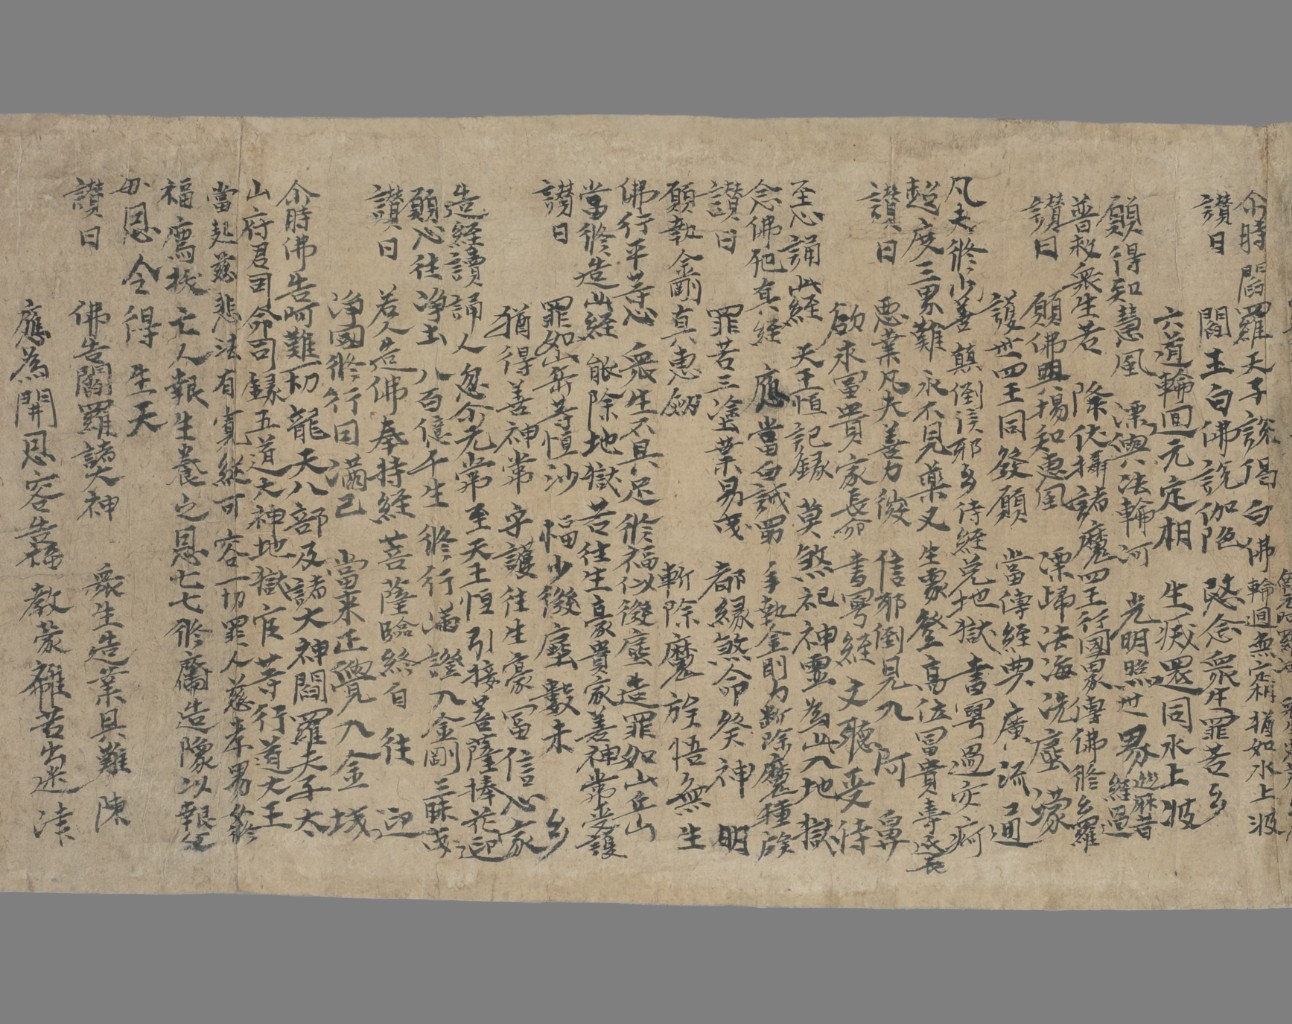 尒時閻羅天子說偈白佛 輪迴無定相 猶如水上波
讃曰 閻王白佛說伽陁 愍念衆生罪苦多
六道輪迴元定相 生滅還同水上波
願得知慧風 漂與八法輪河 光明照世界 遊麻昔經過
普救衆生苦 降伏攝諸魔 四王行國界 傳佛修多羅
讃曰 願佛盟揚知惠風 漂歸法海洗塵濛
護世四王同發願 當傳經典廣流通
凡夫修少善 顛倒該邪多 侍經免地獄 書寫過灾痾
超度三界難 永不見藥叉 生家登高位 冨貴壽延長
讃曰 惡業凡夫善力微 信邪倒見入阿鼻
欲求冨貴家長命 書寫經文聽受侍
至心誦此經 天王恒記録 莫煞祀神靈 爲此入地獄
念佛犯真經 應當自誡勗 手執金剛刀 斷除魔種族
願執金剛真惠劒 斬除魔 㫌悟無生
讃曰 罪苦三塗業易成 都緣煞命祭神明
佛行平等心 衆生不具足 修福似微塵 造罪如山岳
當修造此經 能除地獄苦 往生豪貴家 善神常守護
讃曰 罪如山岳等恒沙 福少微塵數未多
猶得善神常守護 往生豪冨信心家
造經讀誦人 忽尒无常至 天王恒引接 菩薩捧花迎
願心往淨土 八百億千生 修行滿證入 金剛三昧成
讃曰 若人造佛奉持經 菩薩臨終自往迎
淨國修行因滿已 當来正覺入金城
尒時佛告 難一切龍天八部及諸大神閻羅天子太
山府君司命司録五道大神地獄官等行道大王
當起慈悲法有寬縱可容一切罪人慈孝男女修
福薦拔亡人報生養之恩七七修齋造像以報父
母恩令得生天
讃曰 佛告閻羅諸大神 衆生造業具難陳
應爲開恩容告福 教蒙離苦出迷津